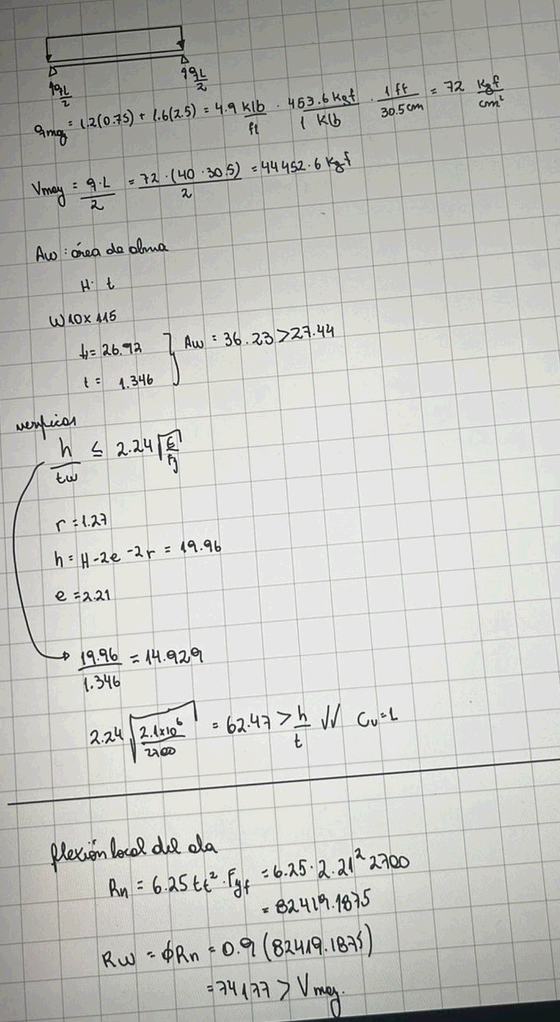 qL/2 qL/2
qmay = 1.2(0.75) + 1.6(2.5) = 4.9 klb/ft · 453.6 kgf/1 klb · 1 ft/30.5cm = 72 kgf/cm²
Vmay = q·L/2 = 72·(40·30.5)/2 = 44452.6 kgf
Aw : área de alma
H· t
W10x115
h= 26.92
t= 1.346
} Aw = 36.23 > 27.44
verificar
h/tw ≤ 2.24 √(E/Fy)
r = 1.27
h = H-2e-2r = 19.96
e = 2.21
19.96/1.346 = 14.829
2.24 √(2.1x10⁶/2700) = 62.47 > h/t √√ Cv=1
flexión local del ala
Rn = 6.25 tt² · Fyf = 6.25 · 2.21² 2700
= 82419.1875
Rw = ϕRn = 0.9 (82419.1875)
= 74177 > Vmay.